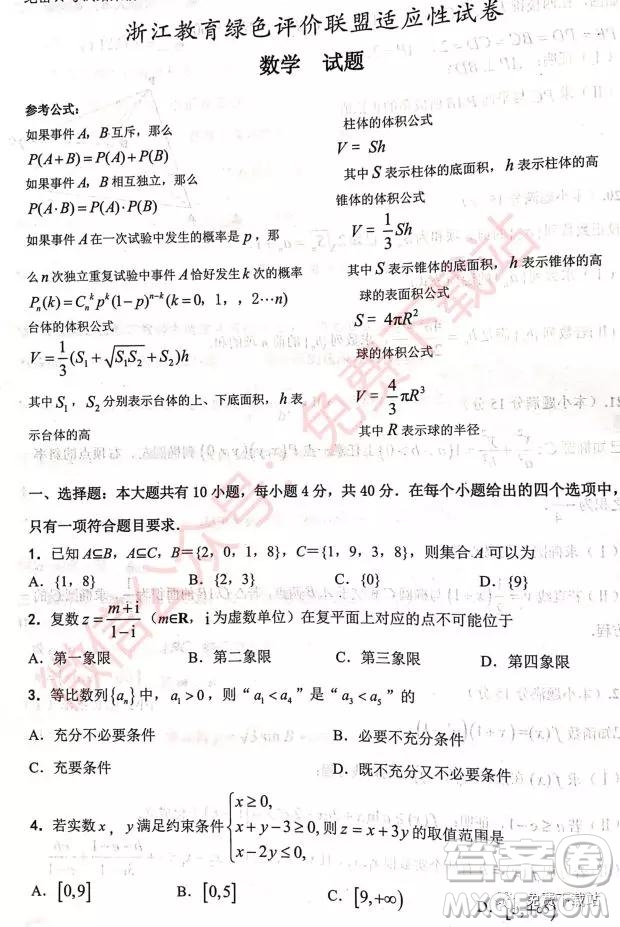 浙江教育绿色评价联盟适应性试卷
数学 试题
参考公式:
如果事件 A, B 互斥, 那么
P(A+B)=P(A)+P(B)
如果事件 A, B 相互独立, 那么
P(A·B)=P(A)·P(B)
如果事件 A 在一次试验中发生的概率是 p, 那
么 n 次独立重复试验中事件 A 恰好发生 k 次的概率
Pₙ(k)=Cₙᵏpᵏ(1-p)ⁿ⁻ᵏ(k=0, 1, 2…n)
台体的体积公式
V=1/3(S₁+√(S₁S₂)+S₂)h
其中 S₁, S₂ 分别表示台体的上、下底面积, h 表
示台体的高
柱体的体积公式
V = Sh
其中 S 表示柱体的底面积, h 表示柱体的高
锥体的体积公式
V = 1/3 Sh
其中 S 表示锥体的底面积, h 表示锥体的高
球的表面积公式
S = 4πR²
球的体积公式
V = 4/3 πR³
其中 R 表示球的半径
一、选择题: 本大题共有 10 小题, 每小题 4 分, 共 40 分. 在每个小题给出的四个选项中,
只有一项符合题目要求.
1. 已知 A⊆B, A⊆C, B={2, 0, 1, 8}, C={1, 9, 3, 8}, 则集合 A 可以为
A. {1, 8} B. {2, 3} C. {0} D. {9}
2. 复数 z=(m+i)/(1-i) (m∈R, i 为虚数单位) 在复平面上对应的点不可能位于
A. 第一象限 B. 第二象限 C. 第三象限 D. 第四象限
3. 等比数列{aₙ}中, a₁>0, 则“a₁<a₄”是“a₃<a₅”的
A. 充分不必要条件 B. 必要不充分条件
C. 充要条件 D. 既不充分又不必要条件
4. 若实数 x, y 满足约束条件{x≥0, x+y-3≥0, x-2y≤0, 则 z=x+3y 的取值范围是
A. [0,9] B. [0,5] C. [9,+∞) D.
微信公众号: 免费下载站
答案圈
免费下载站